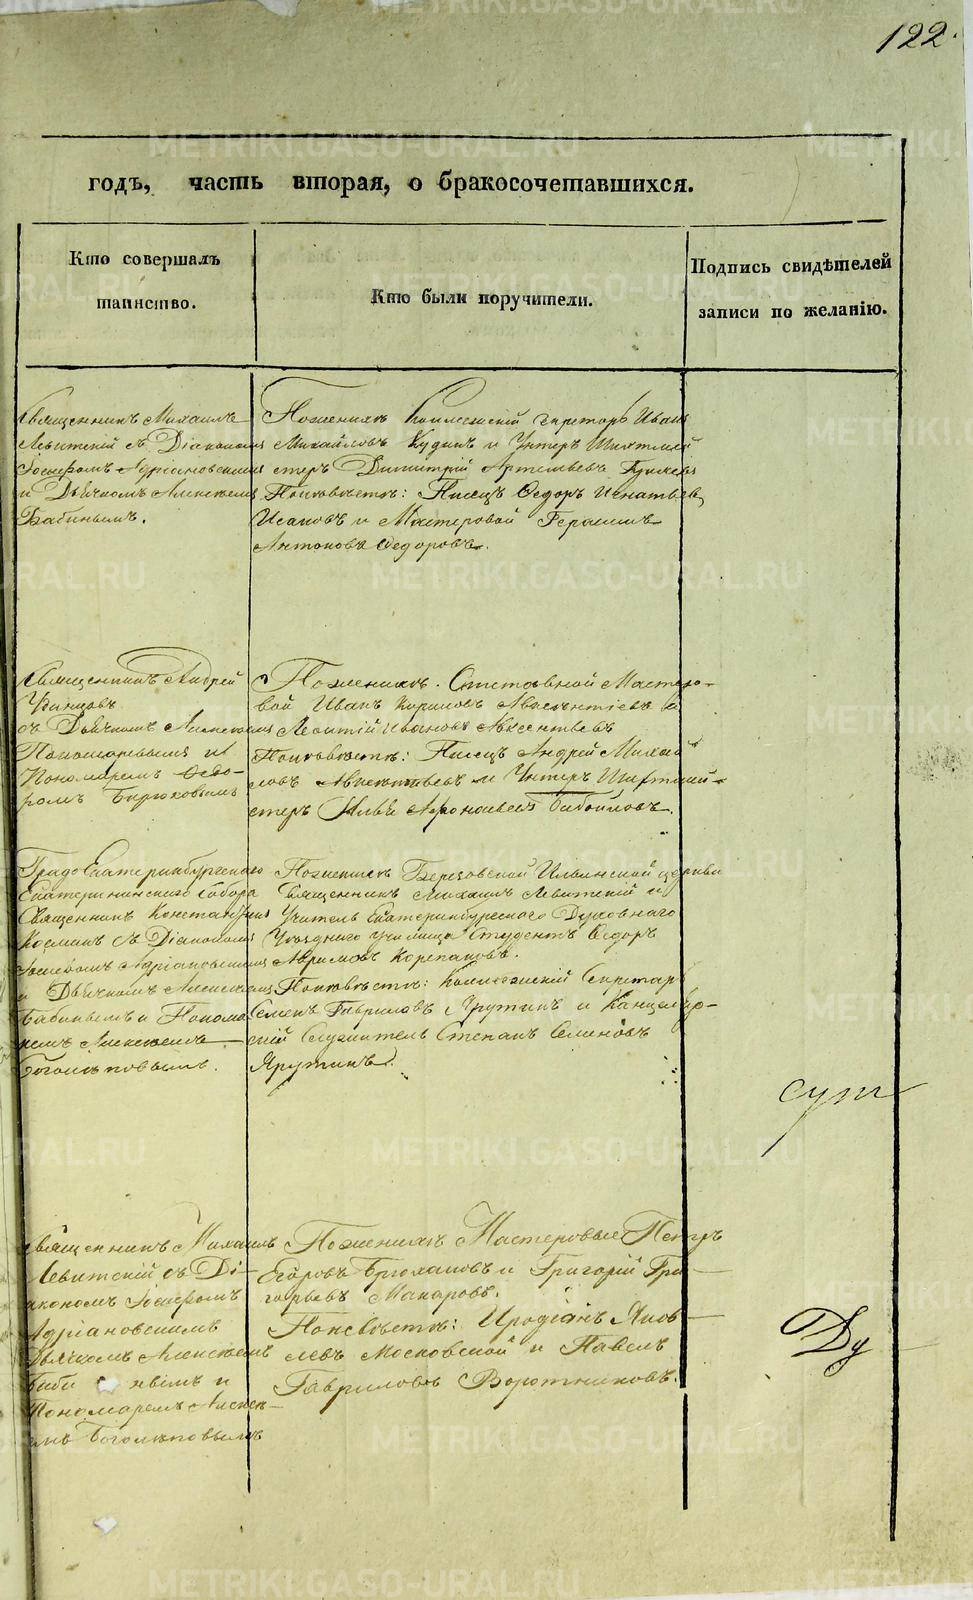 122.
годъ, часть вторая, о бракосочетавшихся.
Кто совершалъ
таинство.
Кто были поручители.
Подпись свидѣтелей
записи по желанію.
Священникъ Михаилъ
Левитскій съ Діакономъ
Іосифомъ Адріановскимъ
и Дьячкомъ Алексѣемъ
Бабинымъ.
По женихѣ Коллежскій Секретарь Иванъ
Михайловъ Кудинъ и Унтеръ Шихтмей
стеръ Димитрій Артемьевъ
По невѣстѣ: Писецъ Ѳедоръ Игнатьевъ
Исаковъ и Мастеровой Герасимъ
Антоновъ Ѳедоровъ.
Священникъ Андрей
съ Дьячкомъ Алексѣемъ
Пономаревымъ и
Пономаремъ Ѳедо-
ромъ Бирюковымъ
По женихѣ. Отставной Мастеро-
вой Иванъ Кириловъ Авксентіевъ и
Леонтій Ивановъ Авксентьевъ
По невѣстѣ: Писецъ Андрей Михай
ловъ Авксентьевъ и Унтеръ Шихтмей-
стеръ Илья Афонасьевъ
Градо Екатеринбургскаго
Екатерининскаго Собора
Священникъ Константинъ
Космин съ Діакономъ
Іосифомъ Адріановскимъ
и Дьячкомъ Алексѣемъ
Бабинымъ и Понома
ремъ Алексѣемъ
Боголѣповымъ.
По женихѣ Березовской Ильинской церкви
Священникъ Михаилъ Левитскій и
Учитель Екатеринбургскаго Духовнаго
Уѣзднаго Училища Студентъ Ѳедоръ
Аврамовъ Корепановъ.
По невѣстѣ: Коллежскій Секретарь
Семенъ Гавриловъ Ярутинъ и Канцеляр-
скій Служитель Степанъ Семеновъ
Ярутинъ.
Священникъ Михаилъ
Левитскій съ Ді-
акономъ Іосифомъ
Адріановскимъ
Дьячкомъ Алексѣемъ
Баби нымъ и
Пономаремъ Алексѣ-
емъ Боголѣповымъ
По женихѣ Мастеровые Петръ
Егоровъ Брюхановъ и Григорій Гри-
горьевъ Макаровъ.
По невѣстѣ: Иродіанъ Яков-
левъ Московской и Павелъ
Гавриловъ Воротниковъ.
Ду